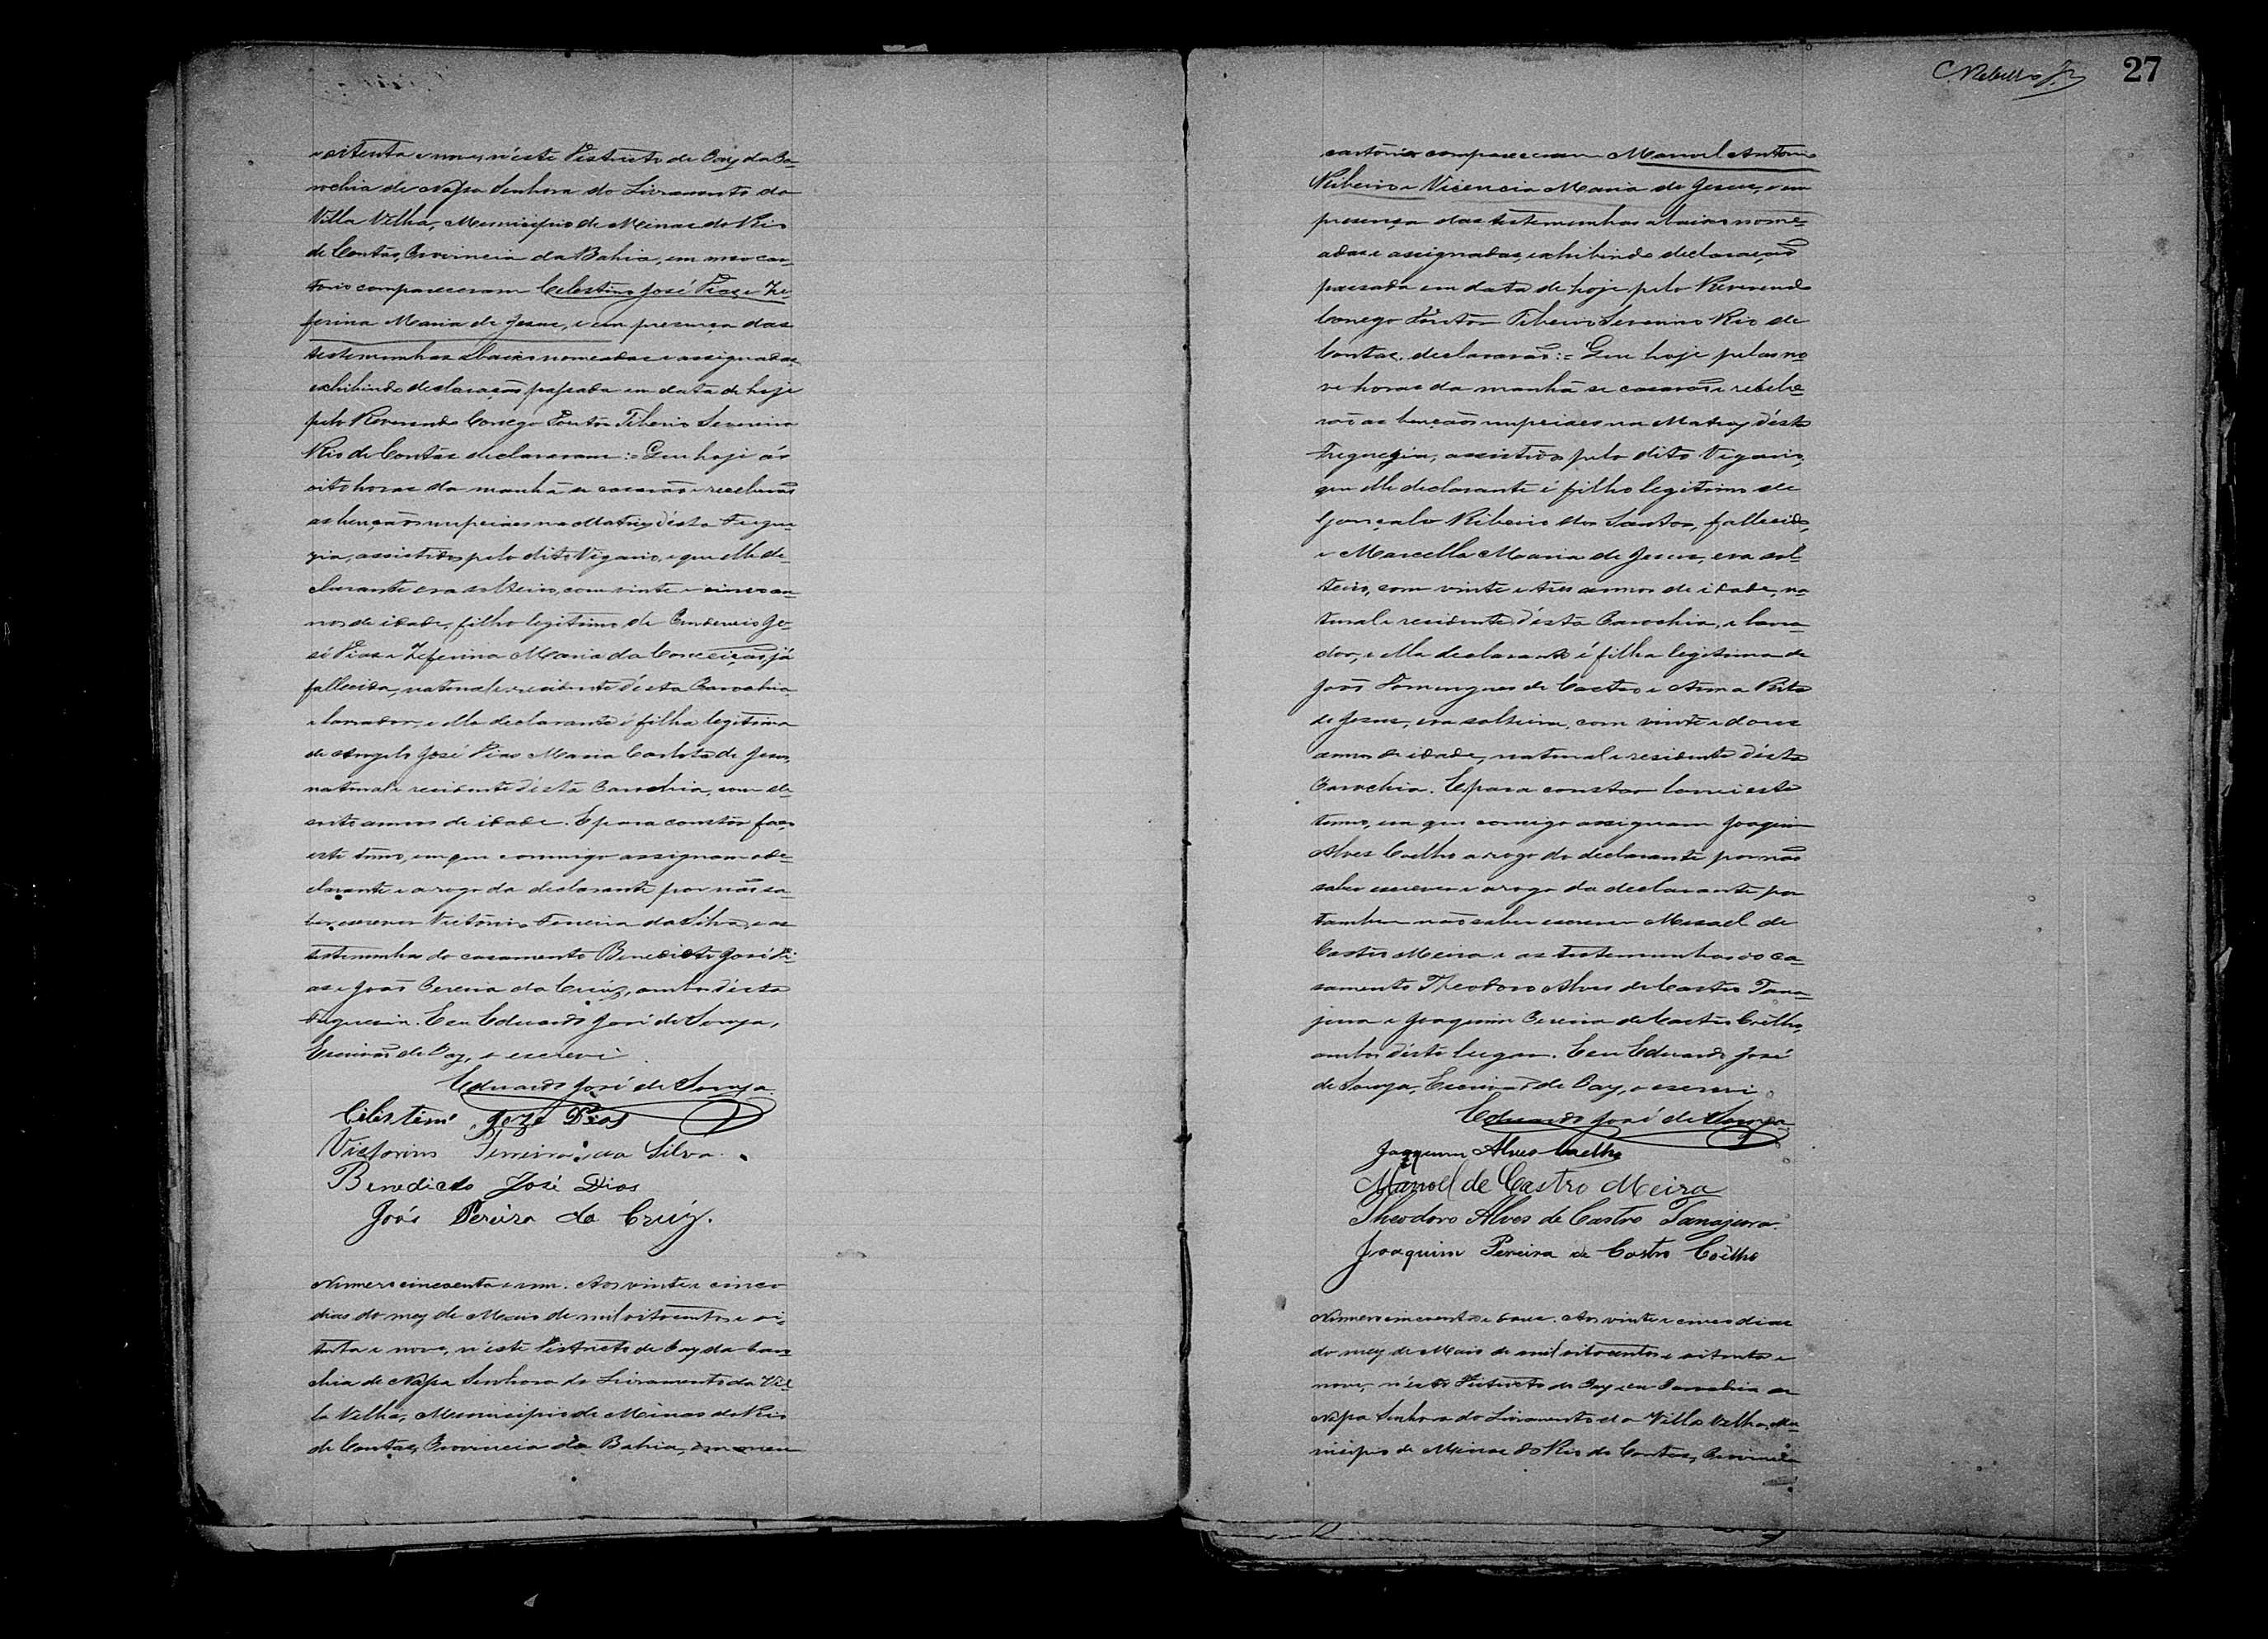 e oitenta e nove, n'este Districto de Paz da Pa-
rochia de Nossa Senhora do Livramento da
Villa Velha, Municipio de Minas do Rio
de Contas, Provincia da Bahia, em meo car-
torio compareceram Celestino José Dias e Ze-
ferina Maria de Jesus, e em presença das
testemunhas abaixo nomeadas e assignadas,
exhibindo declaração passada em data de hoje
pelo Reverendo Conego Doutor Tiberio Severino
Rio de Contas declararam:= Que hoje ás
oito horas da manhã se casarão e receberão
as bençãos nupciaes na Matriz d'esta Fregue-
zia, assistidos pelo dito Vigario, e que elle de-
clarante era solteiro, com vinte e cinco an-
nos de idade, filho legitimo de Prudencio Jo-
sé Dias e Zeferina Maria da Conceição, já
fallecida, natural e residente d'esta Parochia
e lavrador, e ella declarante é filha legitima
de Angelo José Dias Maria Carlota de Jesus,
natural e residente d'esta Parochia, com de-
soito annos de idade. E para constar faço
este termo, em que commigo assignam o de-
clarante e a rogo da declarante por não sa-
ber escrever Victorino Ferreira da Silva, e as
testemunhas do casamento Benedicto José Di-
as e João Pereira da Cruz, ambos d'esta
Freguesia. E eu Eduardo José de Souza,
Escrivão de Paz, o escrevi
Eduardo José de Souza
Celestino Joze Dias
Victorino Ferreira da Silva.
Benedicto José Dias
João Pereira da Cruz.
Numero cincoenta e um. Aos vinte e cinco
dias do mez de Maio de mil oitocentos e oi-
tenta e nove, n'este Districto de Paz da Paro-
chia de Nossa Senhora do Livramento da Vil-
la Velha, Municipio de Minas do Rio
de Contas, Provincia da Bahia, em meu
27
cartorio compareceram Manoel Antonio
Ribeiro e Vicencia Maria de Jesus, e em
presença das testemunhas abaixo nome-
adas e assignadas, exhibindo declaração
passada em data de hoje pelo Reverendo
Conego Doutor Tiberio Severino Rio de
Contas, declararão:= Que hoje pelas no-
ve horas da manhã se casarão e recebe-
rão as bençãos nupciaes na Matriz d'esta
Freguezia, assistidos pelo dito Vigario,
que elle declarante é filho legitimo de
Gonçalo Ribeiro dos Santos, fallecido,
e Marcella Maria de Jesus, era sol-
teiro, com vinte e tres annos de idade, na-
tural e residente d'esta Parochia, e lavra-
dor, e ella declarante é filha legitima de
João Domingues de Castro e Anna Rita
de Jesus, era solteira, com vinte e dous
annos de idade, natural e residente d'esta
Parochia. E para constar lavrei este
termo, em que comigo assignam Joaquim
Alves Coelho a rogo do declarante por não
saber escrever e a rogo da declarante por
tambem não saber escrever Manoel de
Castro Meira e as testemunhas do ca-
samento Theodoro Alves de Castro Tana-
jura e Joaquim Pereira de Castro Coêlho,
ambos d'este lugar. E eu Eduardo José
de Souza, Escrivão de Paz, o escrevi
Eduardo José de Souza
Joaquim Alves Coelho
Manoel de Castro Meira
Theodoro Alves de Castro Tanajura.
Joaquim Pereira de Castro Coêlho
Numero cincoenta e dous. Aos vinte e cinco dias
do mez de Maio de mil oitocentos e oitenta e
nove, n'este Districto de Paz da Parochia de
Nossa Senhora do Livramento da Villa Velha, Mu-
nicipio de Minas do Rio de Contas, Provincia